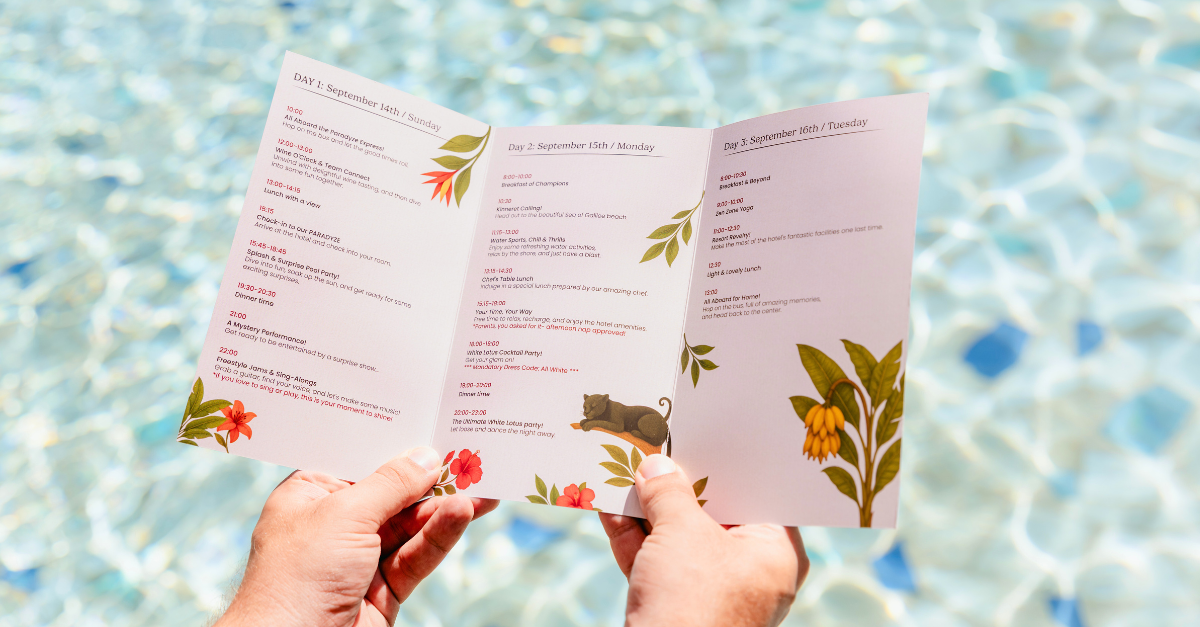 DAY 1: September 14th / Sunday
10:00
All Aboard the Paradyze Express!
Hop on the bus and let the good times roll.
12:00-13:00
Wine O'Clock & Team Connect
Unwind with delightful wine tasting, and then dive
into some fun together.
13:00-14:15
Lunch with a view
15:15
Check-in to our PARADYZE
Arrive at the hotel and check into your room.
15:45-18:45
Splash & Surprise Pool Party!
Dive into fun, soak up the sun, and get ready for some
exciting surprises.
19:30-20:30
Dinner time
21:00
A Mystery Performance!
Get ready to be entertained by a surprise show.
22:00
Freestyle Jams & Sing-Alongs
Grab a guitar, find your voice, and let's make some music!
*If you love to sing or play, this is your moment to shine!
Day 2: September 15th / Monday
8:00-10:00
Breakfast of Champions
10:30
Kinneret Calling!
Head out to the beautiful sea of Galilee beach.
11:15-13:00
Water Sports, Chill & Thrills
Enjoy some refreshing water activities,
relax by the shore, and just have a blast.
13:15-14:30
Chef's Table Lunch
Indulge in a special lunch prepared by our amazing chef.
15:15-18:00
Your Time, Your Way
Free time to relax, recharge, and enjoy the hotel amenities.
*Parents, you asked for it- afternoon nap approved!
18:00-19:00
White Lotus Cocktail Party!
Get your glam on!
*** Mandatory Dress Code: All White ***
19:00-20:00
Dinner time
20:00-23:00
The Ultimate White Lotus party!
Let loose and dance the night away.
Day 3: September 16th / Tuesday
8:00-10:30
Breakfast & Beyond
9:00-10:00
Zen Zone Yoga
9:00-12:30
Resort Revelry!
Make the most of the hotel's fantastic facilities one last time.
12:30
Light & Lovely Lunch
13:00
All Aboard for Home!
Hop on the bus, full of amazing memories,
and head back to the center.